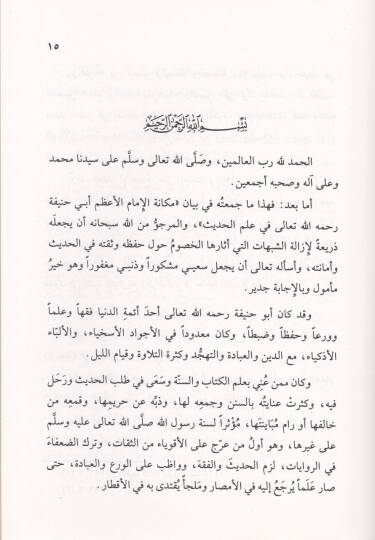 ١٥
بِسْمِ اللهِ الرَّحْمٰنِ الرَّحِيْمِ
الحمد لله رب العالمين، وصَلَّى الله تعالى وسلَّم على سيدنا محمد
وعلى آله وصحبه أجمعين.
أما بعد: فهذا ما جمعتُه في بيان «مكانة الإمام الأعظم أبي حنيفة
رحمه الله تعالى في علم الحديث»، والمرجوُّ من الله سبحانه أن يجعلَه
ذريعةً لإزالة الشبهات التي أثارها الخصومُ حول حفظه وثقته في الحديث
وأمانته، وأسأله تعالى أن يجعل سعيي مشكوراً وذنبي مغفوراً وهو خيرُ
مأمول وبالإجابة جدير.
وقد كان أبو حنيفة رحمه الله تعالى أحدَ أئمةِ الدنيا فقهاً وعلماً
وورعاً وحفظاً وضبطاً، وكان معدوداً في الأجواد الأسخياء، والألبّاء
الأذكياء، مع الدين والعبادة والتهجُّد وكثرة التلاوة وقيام الليل.
وكان ممن عُنِي بعلم الكتاب والسنّة وسَعَى في طلب الحديث ورَحَل
فيه، وكثرتْ عنايتُه بالسنن وجمعِه لها، وذبِّه عن حريمِها، وقمعِه من
خالفها أو رام مُبَايَنَتَها، مُؤْثِراً لسنة رسول الله صلَّى الله تعالى عليه وسلَّم
على غيرها، وهو أولُ من عرّج على الأقوياء من الثقات، وترك الضعفاءَ
في الروايات، لزم الحديثَ والفقهَ، وواظب على الورع والعبادة، حتى
صار عَلَماً يُرجَعُ إليه في الأمصار ومَلجأً يُقتدى به في الأقطار.